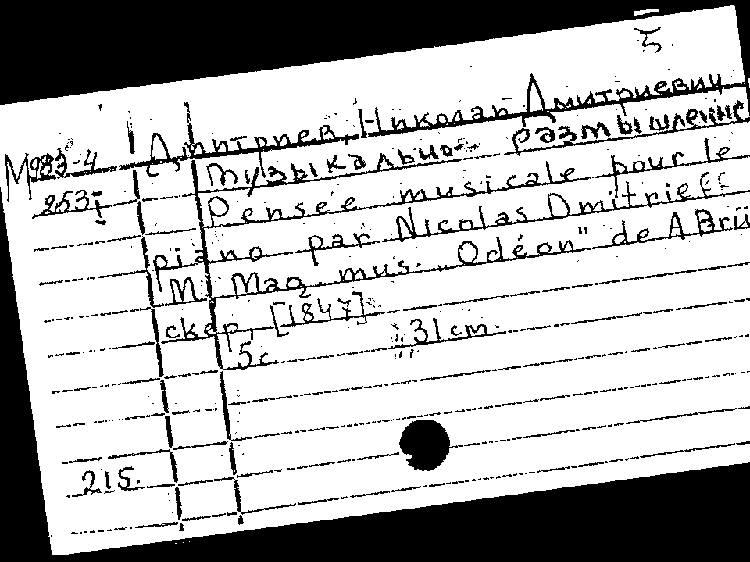 5.
Дмитриев, Николай Дмитриевич
М983-4 Музыкально- размышление
253 I Pensée musicale pour le
piano par Nicolas Dmitrieff
M. Mag. mus. "Odéon" de A Brü
скер, [1847].
5 с. 31 cm.
215.